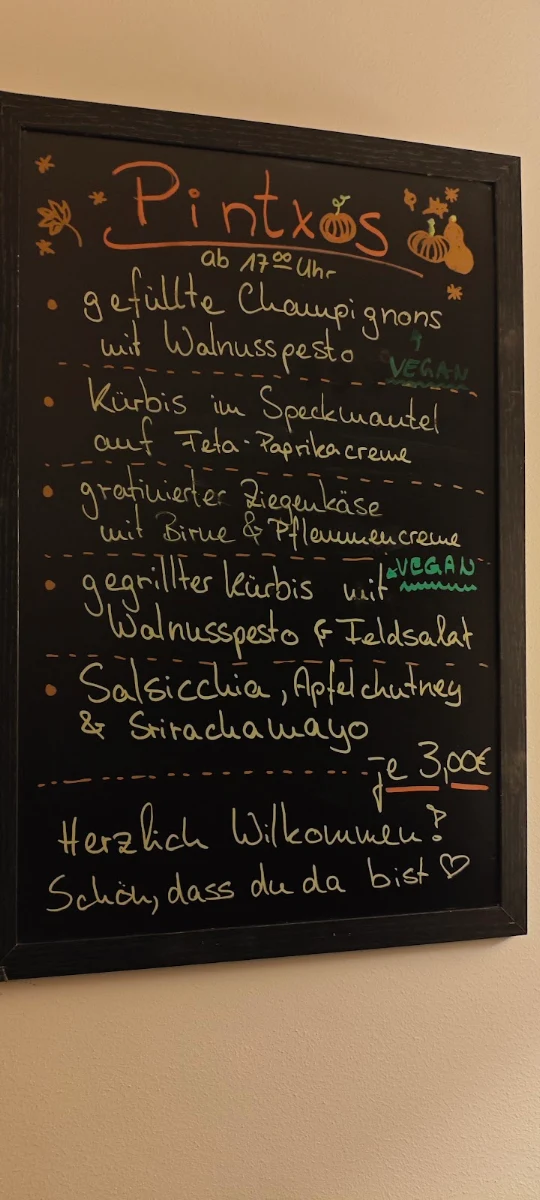 Pintxos
ab 17⁰⁰ Uhr
• gefüllte Champignons
mit Walnusspesto
VEGAN
• Kürbis im Speckmantel
auf Feta-Paprikacreme
• gratinierter Ziegenkäse
mit Birne & Pflaumencreme
• gegrillter Kürbis mit
VEGAN
Walnusspesto & Feldsalat
• Salsicchia, Apfelchutney
& Srirachamayo
je 3,00€
Herzlich Wilkommen!
Schön, dass du da bist ♡